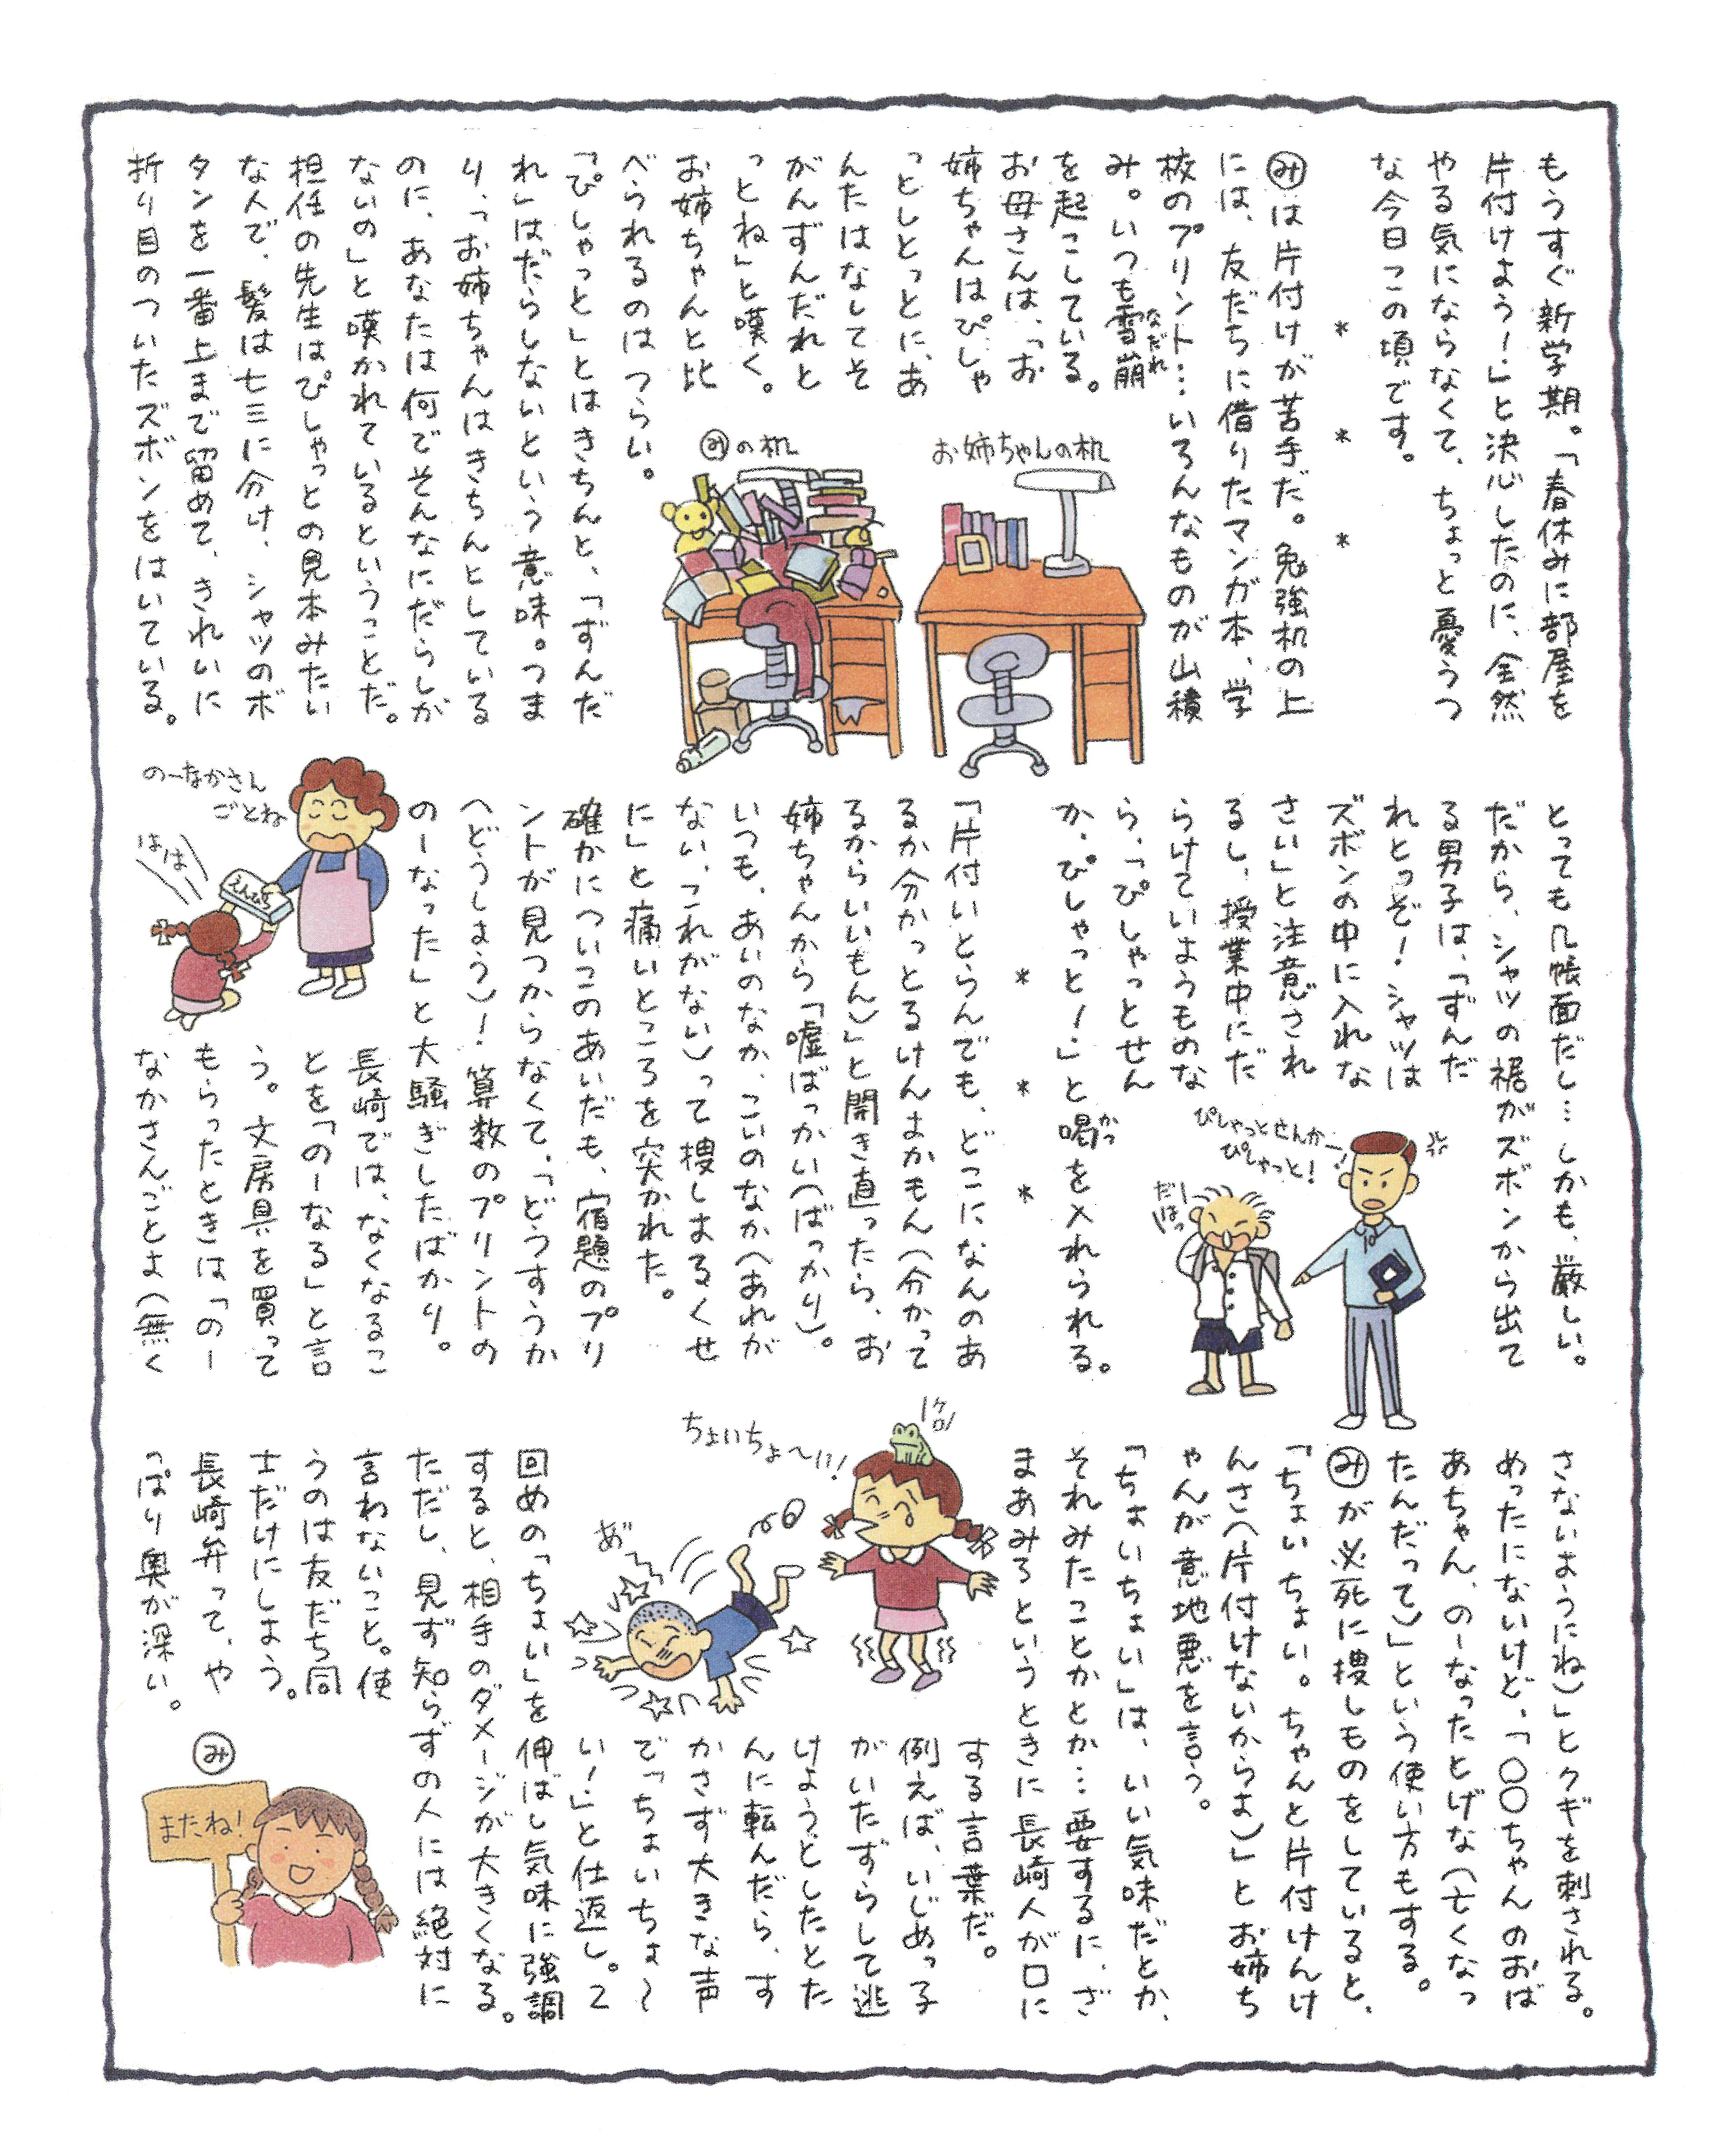 もうすぐ新学期。「春休みに部屋を
片付けよう!」と決心したのに、全然
やる気にならなくて、ちょっと憂うつ
な今日この頃です。
* * *
みは片付けが苦手だ。勉強机の上
には、友だちに借りたマンガ本、学
校のプリント…いろんなものが山積
み。いつも雪崩
なだれ
を起こしている。
お母さんは、「お
姉ちゃんはぴしゃ
っとしとっとに、あ
んたはなしてそ
がんずんだれと
っとね」と嘆く。
お姉ちゃんと比
べられるのはつらい。
「ぴしゃっと」とはきちんと、「ずんだ
れ」はだらしないという意味。つま
り、「お姉ちゃんはきちんとしている
のに、あなたは何でそんなにだらしが
ないの」と嘆かれているということだ。
担任の先生はぴしゃっとの見本みたい
な人で、髪は七三に分け、シャツのボ
タンを一番上まで留めて、きれいに
折り目のついたズボンをはいている。
お姉ちゃんの机
みの机
とっても几帳面だし…しかも、厳しい。
だから、シャツの裾がズボンから出て
る男子は、「ずんだ
れとっぞ!シャツは
ズボンの中に入れな
さい」と注意され
るし、授業中にだ
らけていようものな
ら、「ぴしゃっとせん
か、ぴしゃっと!」と喝を入れられる。
かつ
* * *
「片付いとらんでも、どこになんのあ
るか分かっとるけんよかもん(分かって
るからいいもん)」と開き直ったら、お
姉ちゃんから「嘘ばっかい(ばっかり)。
いつも、あいのなか、こいのなか(あれが
ない、これがない)って捜しよるくせ
に」と痛いところを突かれた。
確かについこのあいだも、宿題のプリ
ントが見つからなくて、「どうすうか
(どうしよう)!算数のプリントの
のーなった」と大騒ぎしたばかり。
長崎では、なくなるこ
とを「のーなる」と言
う。文房具を買って
もらったときは「のー
なかさんごとよ(無く
ぴしゃっとせんかー!
ぴしゃっと!
だはっ
のーなかさん
ごとね
はは
えんぴつ
さないようにね)」とクギを刺される。
めったにないけど、「〇〇ちゃんのおば
あちゃん、のーなったとげな(亡くなっ
たんだって)」という使い方もする。
みが必死に捜しものをしていると、
「ちょいちょい。ちゃんと片付けんけ
んさ(片付けないからよ)」とお姉ち
ゃんが意地悪を言う。
「ちょいちょい」は、いい気味だとか、
それみたことかとか…要するに、ざ
まあみろというときに長崎人が口に
する言葉だ。
例えば、いじめっ子
がいたずらして逃
けようとしたとた
んに転んだら、す
かさず大きな声
で「ちょいちょ〜
い!」と仕返し。2
回めの「ちょい」を伸ばし気味に強調
すると、相手のダメージが大きくなる。
ただし、見ず知らずの人には絶対に
言わないこと。使
うのは友だち同
士だけにしよう。
長崎弁って、や
っぱり奥が深い。
み
ちょいちょ〜い!
ケロ
あ゛
またね!